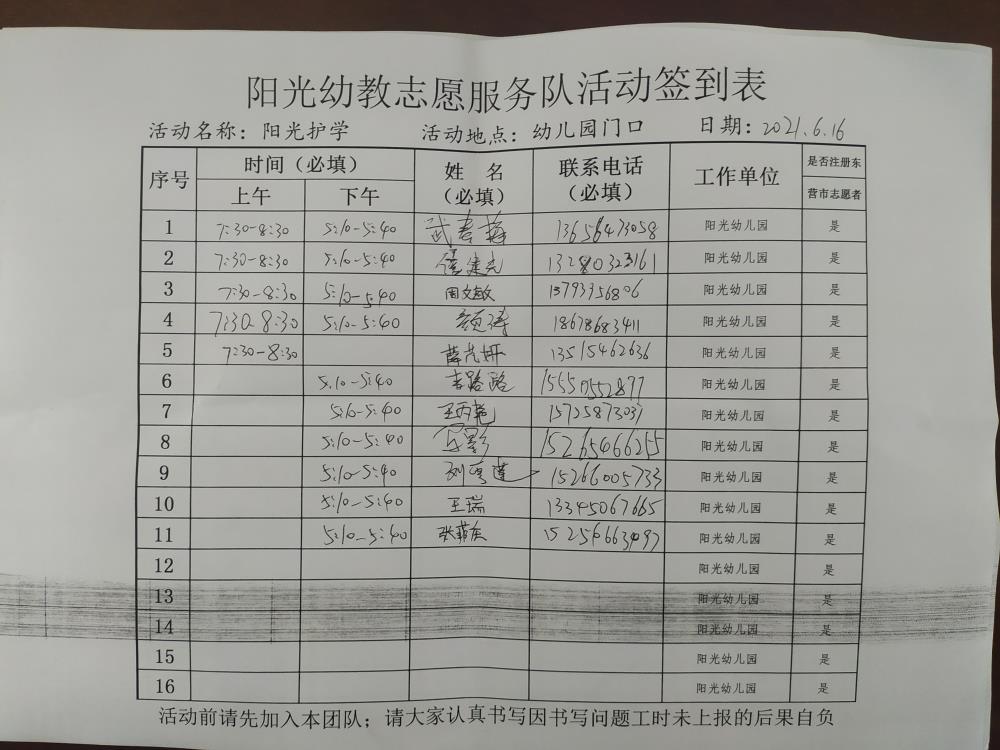 阳光幼教志愿服务队活动签到表
活动名称：阳光护学 活动地点：幼儿园门口 日期：2021.6.16
序号 时间（必填） 姓名（必填） 联系电话（必填） 工作单位 是否注册东营市志愿者
上午 下午
1 7:30-8:30 5:10-5:40 武春梅 13656473058 阳光幼儿园 是
2 7:30-8:30 5:10-5:40 13280323161 阳光幼儿园 是
3 7:30-8:30 5:10-5:40 周文敏 13793356806 阳光幼儿园 是
4 7:30-8:30 5:10-5:40 颜涛 18678683411 阳光幼儿园 是
5 7:30-8:30 薛 13515462636 阳光幼儿园 是
6 5:10-5:40 李路路 15550552877 阳光幼儿园 是
7 5:10-5:40 王丙艳 15725873031 阳光幼儿园 是
8 5:10-5:40 15265466255 阳光幼儿园 是
9 5:10-5:40 刘秀莲 15266005733 阳光幼儿园 是
10 5:10-5:40 王瑞 13345067665 阳光幼儿园 是
11 5:10-5:40 张 15256663497 阳光幼儿园 是
12 阳光幼儿园 是
13 阳光幼儿园 是
14 阳光幼儿园 是
15 阳光幼儿园 是
16 阳光幼儿园 是
活动前请先加入本团队；请大家认真书写因书写问题工时未上报的后果自负